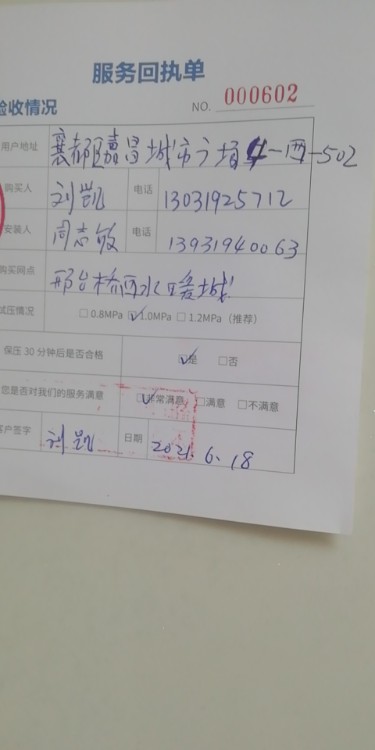 服务回执单
验收情况
NO. 000602
用户地址 襄都区嘉昌城市广场4-1-西-502
购买人 刘凯 电话 13031925712
安装人 闫志敏 电话 13931940063
购买网点 邢台桥西水暖城
试压情况 □0.8MPa ☑1.0MPa □1.2MPa（推荐）
保压30分钟后是否合格 ☑是 □否
您是否对我们的服务满意 ☑非常满意 □满意 □不满意
客户签字 刘凯 日期 2021.6.18